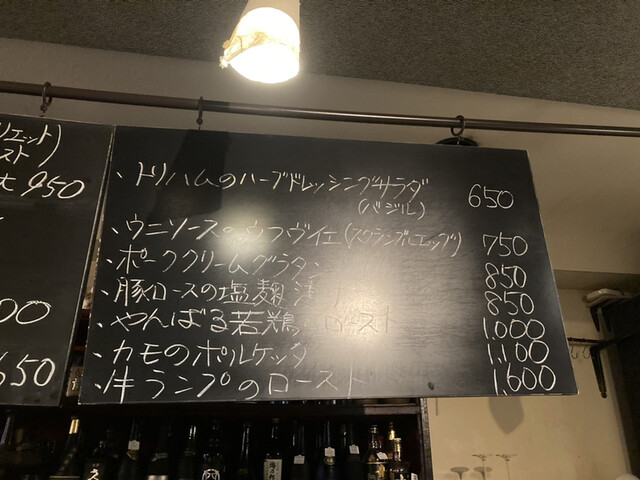 リエット)
スト
大 950
00
650
・トリハムのハーブドレッシングサラダ 650
(バジル)
・ウニソースのウフヴィエ(スクランブルエッグ) 750
・ポーククリームグラタン 850
・豚ロースの塩麹漬 850
・やんばる若鶏 ロースト 1.000
・カモのポルケッタ 1.100
・牛ランプのロースト 1.600